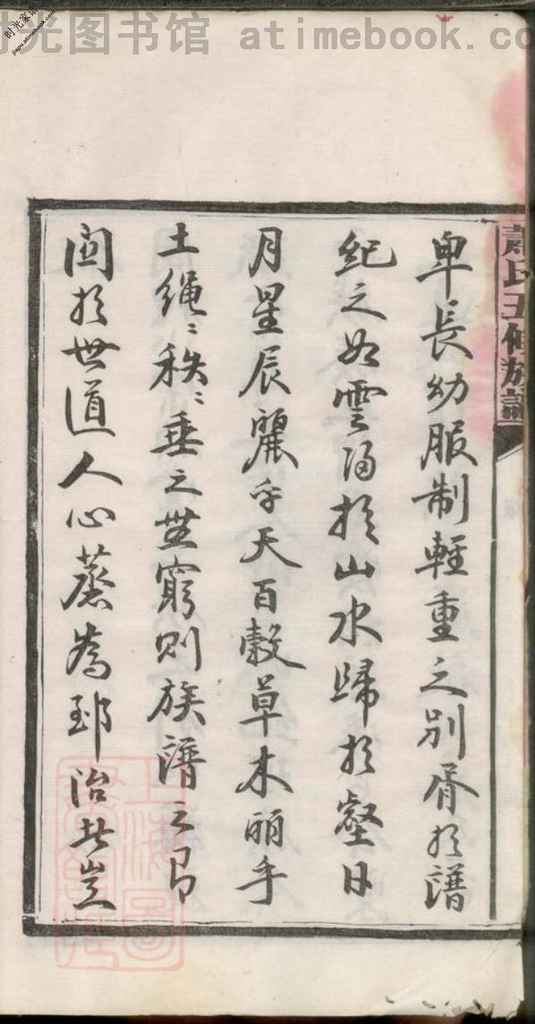 时光图书馆 atimebook.co
蕭氏五修族譜
卑長幼服制輕重之別胥於譜
紀之如雲歸於山水歸於壑日
月星辰麗乎天百穀草木麗乎
土繩〻秩〻垂之無窮則族譜之
関於世道人心蒸為郅治者豈